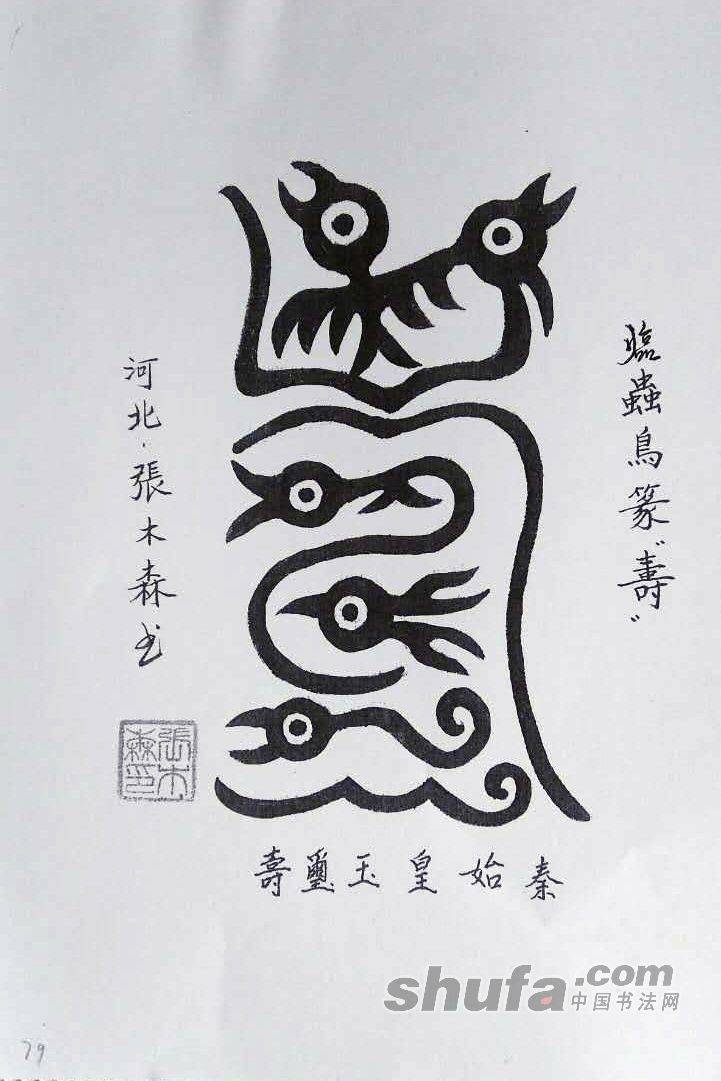 臨蟲鳥篆"壽"
壽
河北·張木森书
張木森印
秦始皇玉璽壽
shufa.com
中国书法网
79